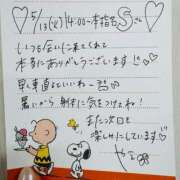 5/13(火)14:00〜本指名Sさん
いつも会いに来てくれて
本当にありがとうございます
早く車直るといいね〜
暑いから身体に気をつけてね!
また次回を
楽しみにしています